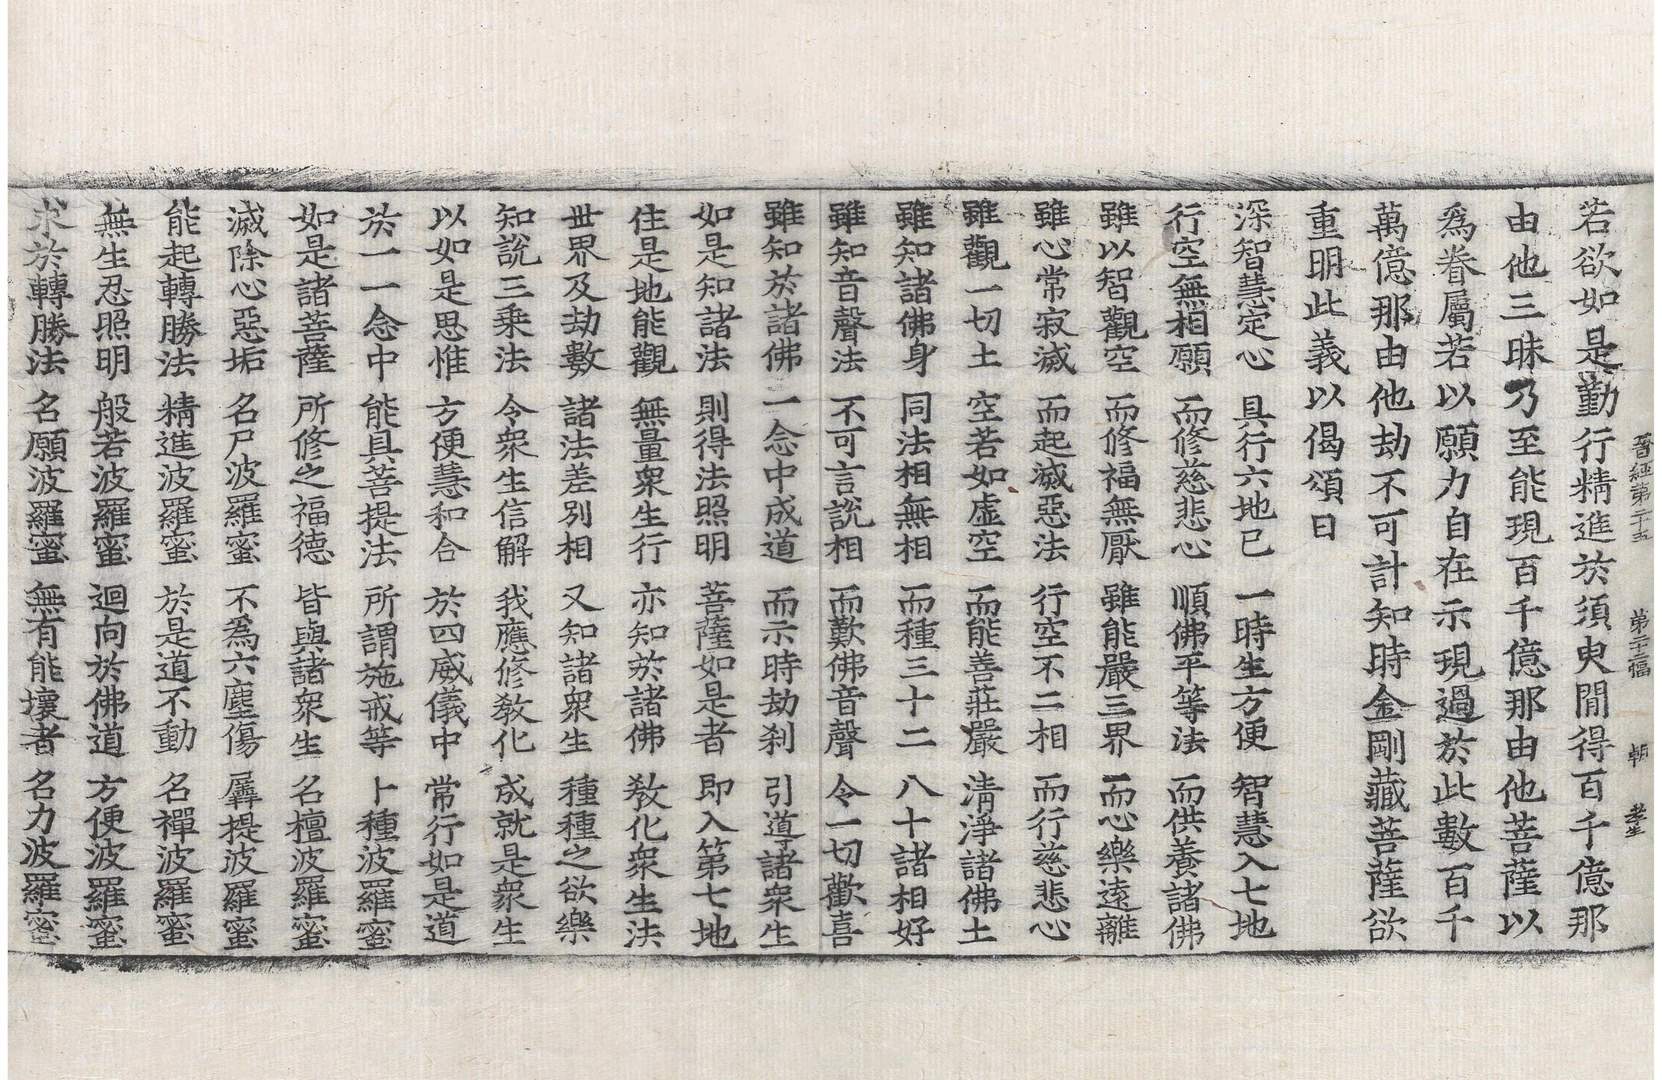 晉經第二十五　第二十三幅　朝　孝生
若欲如是勤行精進於須臾閒得百千億那
由他三昧乃至能現百千億那由他菩薩以
爲眷屬若以願力自在示現過於此數百千
萬億那由他劫不可計知時金剛藏菩薩欲
重明此義以偈頌曰
深智慧定心　具行六地已　一時生方便　智慧入七地
行空無相願　而修慈悲心　順佛平等法　而供養諸佛
雖以智觀空　而修福無厭　雖能嚴三界　而心樂遠離
雖心常寂滅　而起滅惡法　行空不二相　而行慈悲心
雖觀一切土　空若如虛空　而能善莊嚴　清淨諸佛土
雖知諸佛身　同法相無相　而種三十二　八十諸相好
雖知音聲法　不可言說相　而歎佛音聲　令一切歡喜
雖知於諸佛　一念中成道　而示時劫刹　引導諸衆生
如是知諸法　則得法照明　菩薩如是者　即入第七地
住是地能觀　無量衆生行　亦知於諸佛　教化衆生法
世界及劫數　諸法差別相　又知諸衆生　種種之欲樂
知說三乘法　令衆生信解　我應修教化　成就是衆生
以如是思惟　方便慧和合　於四威儀中　常行如是道
於一一念中　能具菩提法　所謂施戒等　十種波羅蜜
如是諸菩薩　所修之福德　皆與諸衆生　名檀波羅蜜
滅除心惡垢　名尸波羅蜜　不爲六塵傷　羼提波羅蜜
能起轉勝法　精進波羅蜜　於是道不動　名禪波羅蜜
無生忍照明　般若波羅蜜　迴向於佛道　方便波羅蜜
求於轉勝法　名願波羅蜜　無有能壞者　名力波羅蜜